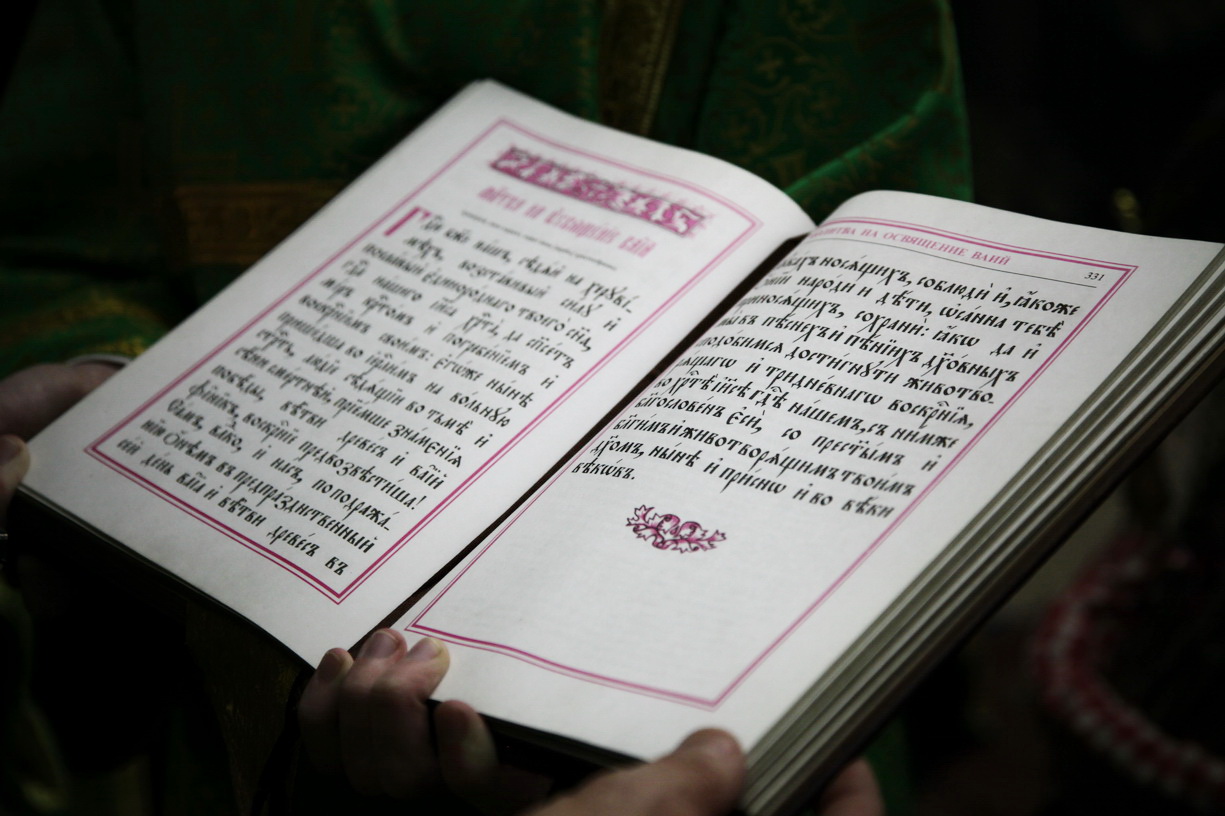 на освѧщенїе ваїй
Гди бже нашъ, сѣдѧй на херꙋві-
мѣхъ, возставивый силꙋ и
пославый єдинороднаго твоего сн҃а,
гдⷭ҇а нашего їи҃са хрⷭ҇та, да спⷭ҇етъ
міръ крⷭ҇томъ и погребенїемъ и
воскрⷭ҇нїемъ своимъ: єгѡже нынѣ
пришедша во їерⷭ҇лимъ на вольнꙋю
стрⷭ҇ть, людїе сѣдѧщїи во тьмѣ и
сѣни смертнѣй, прїемше знаменїѧ
побѣды, вѣтви древесъ и ваїй
фїникъ, воскрⷭ҇нїе предвозвѣстиша!
Самъ, влⷣко, и насъ, по подража-
нїю Онѣмъ въ предпразднственный
сей день ваїа и вѣтви древесъ въ
МОЛИТВА НА ОСВЯЩЕНИЕ ВАИЙ
331
рꙋкахъ носѧщихъ, соблюди и, ꙗкоже
народи и дѣти, ѡсанна тебѣ
приносѧщихъ, сохрани: ꙗкѡ да и
мы въ пѣснехъ и пѣнїихъ дх҃овныхъ
сподобимсѧ достигнꙋти животво-
рѧщагѡ и тридневнагѡ воскрⷭ҇нїѧ,
во хрⷭ҇тѣ їи҃сѣ гдⷭ҇ѣ нашемъ, съ нимже
благословенъ Єси, со прест҃ымъ и
благимъ и животворѧщимъ твоимъ
дх҃омъ, нынѣ и приснѡ и во вѣки
вѣкѡвъ.